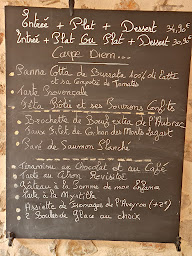 Entrée + Plat + Dessert 34,90€
Entrée + Plat Ou Plat + Dessert 30,90€
Carpe Diem...
Panna Cotta de Burrata
et sa Compotée de Tomates
Tarte Provençale
Féta Rôtie et ses Poivrons Confits
Brochet de Boeuf extra de l'Aubrac
Faux Filet de Cochon des Monts Lagast
Pavé de Saumon Planché
Tiramisu au Chocolat et au Café
Tarte au Citron Revisitée
Gâteau à la Pomme de mon Enfance
Tarte à la Myrtille
Assiette de Fromages de l'Aveyron (+2€)
2 Boules de Glace au choix